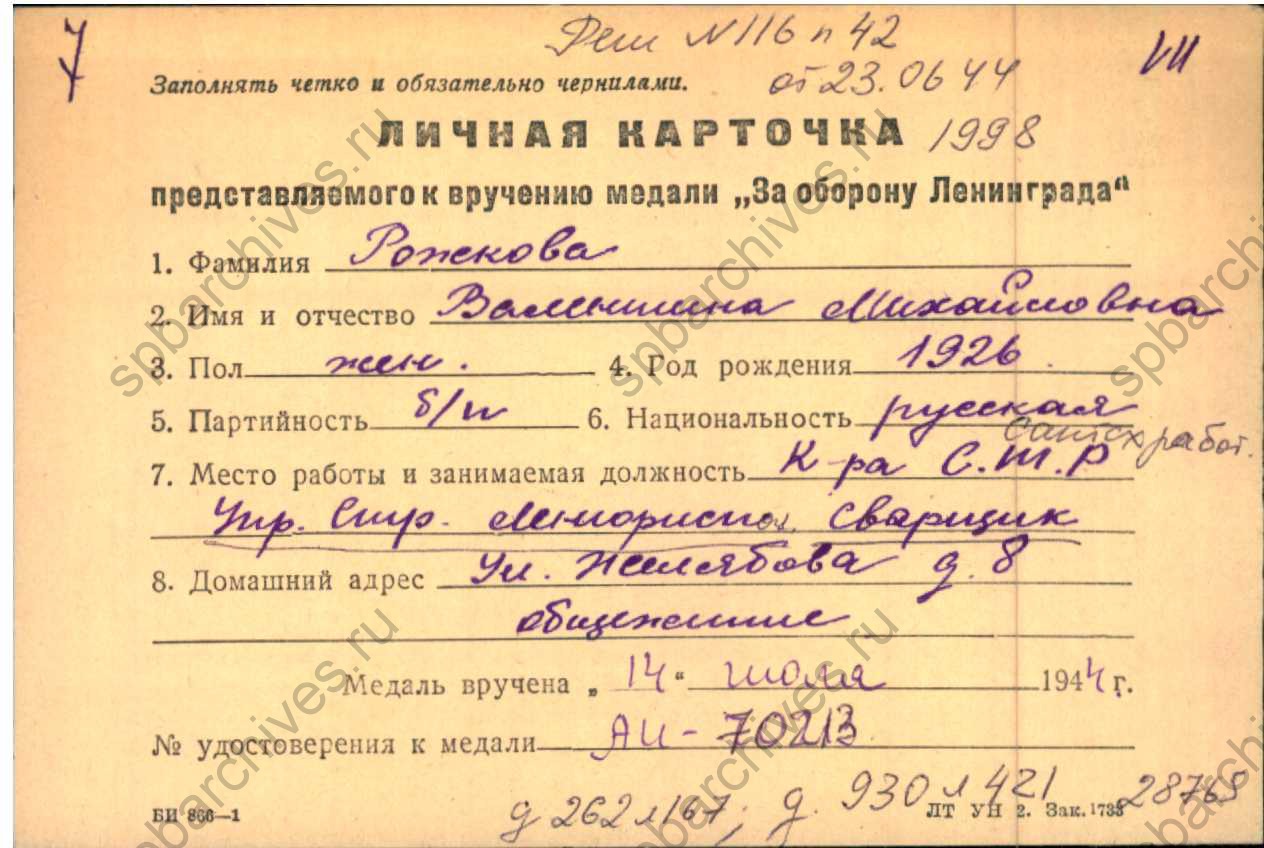 7
Реш №116 п 42
VII
Заполнять четко и обязательно чернилами.
от 23.06 44
ЛИЧНАЯ КАРТОЧКА 1998
представляемого к вручению медали „За оборону Ленинграда“
1. Фамилия Рожкова
2. Имя и отчество Валентина Михайловна
3. Пол жен. 4. Год рождения 1926.
5. Партийность б/п 6. Национальность русская
сантех работ.
7. Место работы и занимаемая должность К-ра С.Т.Р
Упр. Стр. Сварщик
8. Домашний адрес Ул. Желябова д. 8
общежитие
Медаль вручена „14“ июля 1944 г.
№ удостоверения к медали АИ-70213
БИ 866—1
д 262 л 167; д. 930 л 421
ЛТ УН 2. Зак. 1733
28769
spbarchives.ru